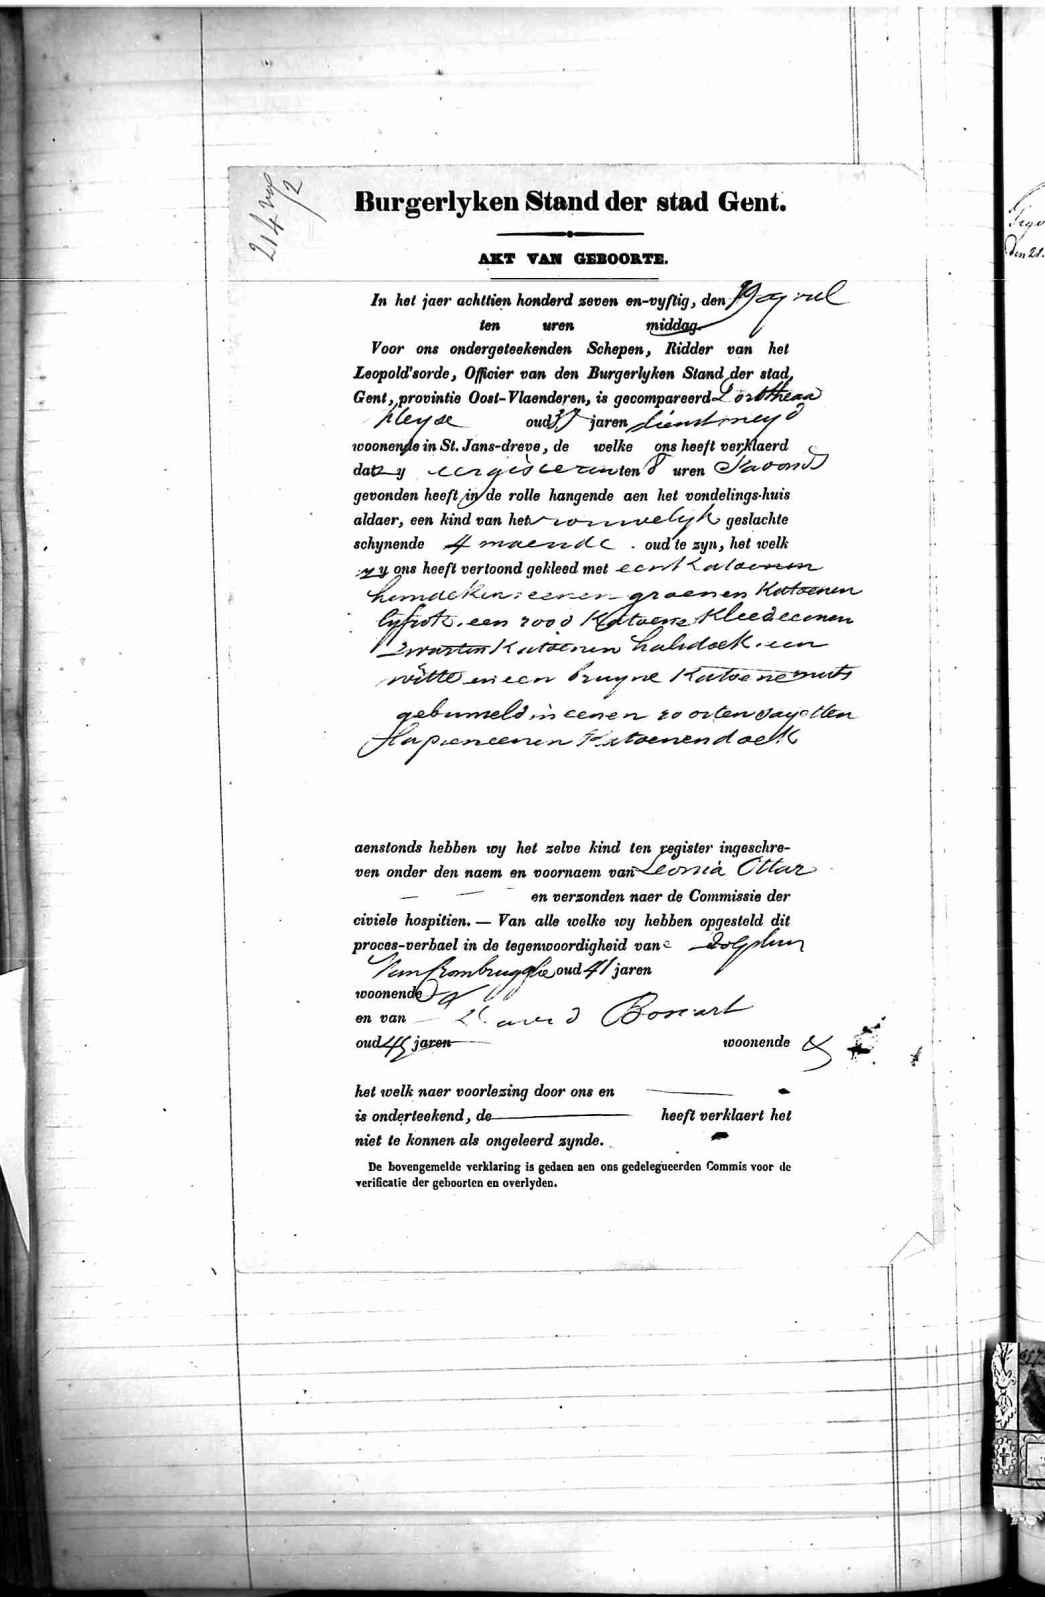 Burgerlyken Stand der stad Gent.
AKT VAN GEBOORTE.
In het jaer achttien honderd zeven en-vyftig, den 19 april
ten uren middag
Voor ons ondergeteekenden Schepen, Ridder van het
Leopold'sorde, Officier van den Burgerlyken Stand der stad,
Gent, provintie Oost-Vlaenderen, is gecompareerd Dorothea
Pleyse oud 37 jaren dienstmeyd
woonende in St. Jans-dreve, de welke ons heeft verklaerd
dat zy eergisteren ten 8 uren s'avonds
gevonden heeft in de rolle hangende aen het vondelings-huis
aldaer, een kind van het vrouwelyk geslachte
schynende 4 maende oud te zyn, het welk
zy ons heeft vertoond gekleed met een Katoenen
hemdeken: eenen groenen Katoenen
lyfrok, een rood Katoene Kleed eenen
zwarten Katoenen halsdoek, een
witte en een bruyne Katoene muts
gebunseld in eenen zwarten sayetten
en eenen Katoenen doek
aenstonds hebben wy het zelve kind ten register ingeschre-
ven onder den naem en voornaem van Leonia Ottar
en verzonden naer de Commissie der
civiele hospitien. — Van alle welke wy hebben opgesteld dit
proces-verbael in de tegenwoordigheid van Dolphin
Van Crombrugghe oud 41 jaren
woonende
en van David Bossaert
oud 45 jaren woonende
het welk naer voorlezing door ons en
is onderteekend, de heeft verklaert het
niet te konnen als ongeleerd zynde.
De bovengemelde verklaring is gedaen aen ons gedelegueerden Commis voor de
verificatie der geboorten en overlyden.